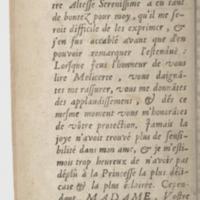 tre Altesse Serenissime a eu tant
de bontez pour moy, qu'il me se-
roit difficile de les exprimer, &
j'en fus accablé avant que d'en
pouvoir remarquer l'estenduë:
Lorsque j'eus l'honneur de vous
lire Melicerte, vous daignâ-
tes me rassurer, vous me donnâtes
des applaudissemens, & dés ce
mesme moment vous m'honorâtes
de vôtre protection. Jamais la
joye n'avoit trouvé plus de sensi-
bilité dans mon ame, & je m'esti-
mois trop heureux de n'avoir pas
déplû à la Princesse la plus déli-
cate & la plus
Cepen-
dant, MADAME, Vostre